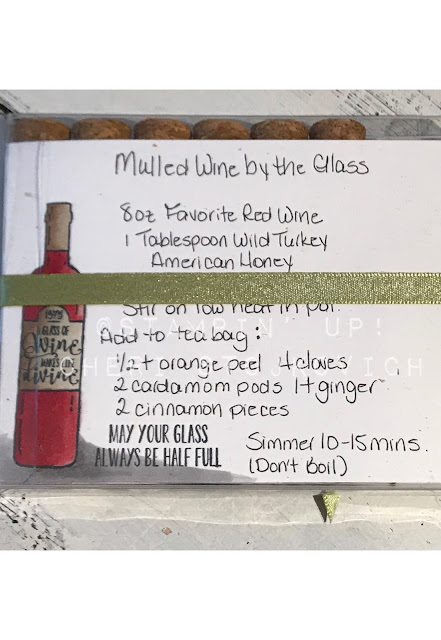 Mulled Wine by the Glass
8oz Favorite Red Wine
1 Tablespoon Wild Turkey
American Honey
Stir on low heat in pot.
©STAMPIN' UP!
CHERI
Add to tea bag:
1/2 t orange peel 4 cloves
2 cardamom pods 1t ginger
2 cinnamon pieces
A GLASS OF
Wine
MAKES LIFE
divine
MAY YOUR GLASS
ALWAYS BE HALF FULL
Simmer 10-15 mins.
(Don't Boil)